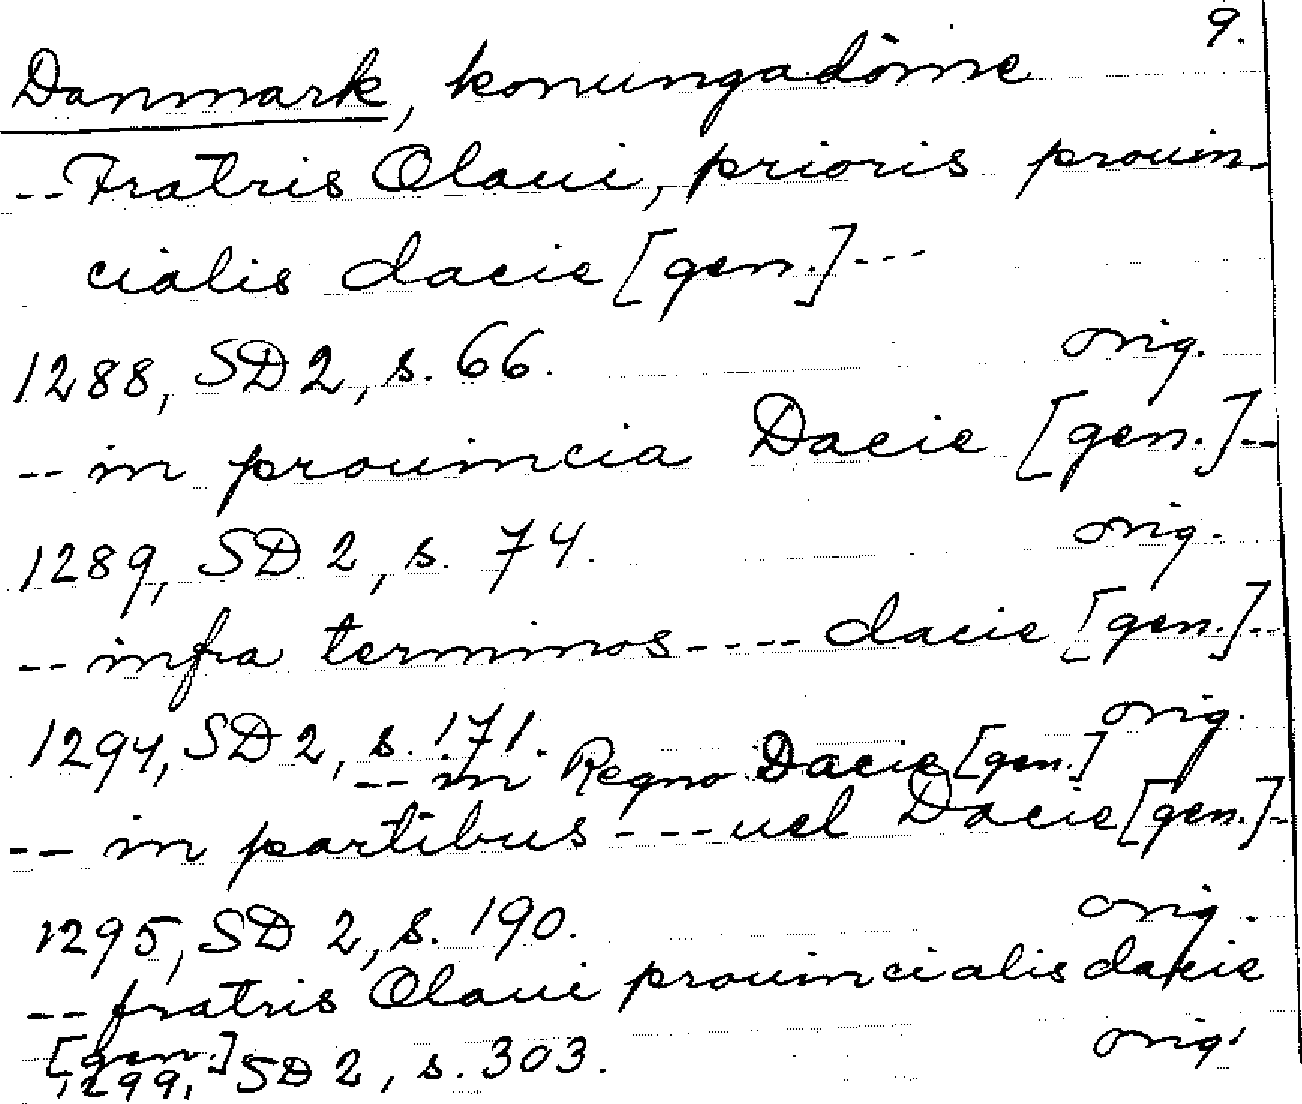 9.
Danmark, konungadöme
-- Fratris Olaui, prioris prouin-
cialis dacie [gen.] ---
1288, SD 2, s. 66. orig.
-- in prouincia Dacie [gen.] --
1289, SD 2, s. 74. orig.
-- infra terminos ---- dacie [gen.] --
1294, SD 2, s. 171. orig.
-- in Regno Dacie [gen.]
-- in partibus --- uel Dacie [gen.] --
1295, SD 2, s. 190. orig.
-- fratris Olaui prouincialis dacie
[gen.]
1299, SD 2, s. 303. orig.